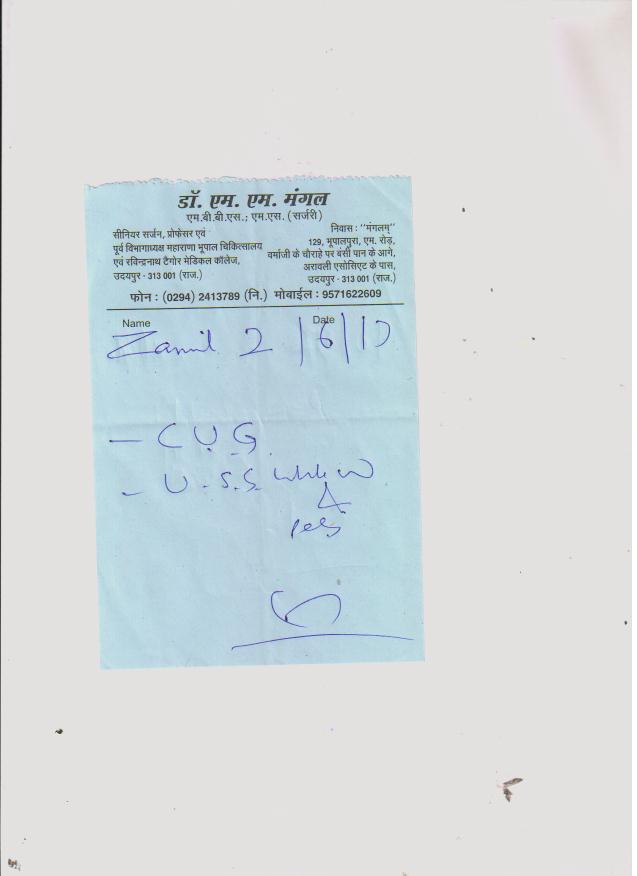 डॉ. एम. एम. मंगल
एम.बी.बी.एस.; एम.एस. (सर्जरी)
सीनियर सर्जन, प्रोफेसर एवं
पूर्व विभागाध्यक्ष महाराणा भूपाल चिकित्सालय
एवं रविन्द्रनाथ टैगोर मेडिकल कॉलेज,
उदयपुर - 313 001 (राज.)
निवास : "मंगलम्"
129, भूपालपुरा, एम. रोड़,
वर्माजी के चौराहे पर बंसी पान के आगे,
अरावली एसोसिएट के पास,
उदयपुर - 313 001 (राज.)
फोन : (0294) 2413789 (नि.) मोबाईल : 9571622609
Name Date
2/6/17
- C U G.
- U.S.S.